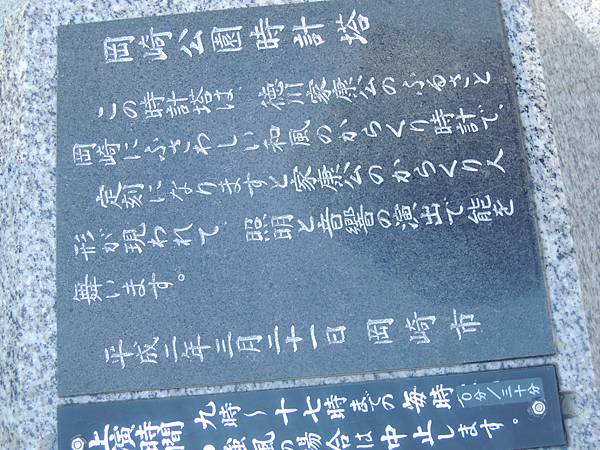 岡崎公園時計塔
この時計塔は、徳川家康公のふるさと
岡崎にふさわしい和風のからくり時計で、
定刻になりますと家康公のからくり人
形が現われて、照明と音響の演出で能を
舞います。
平成二年三月三十一日 岡崎市
上演時間 九時～十七時までの毎時 0分/三十分
強風の場合は中止します。